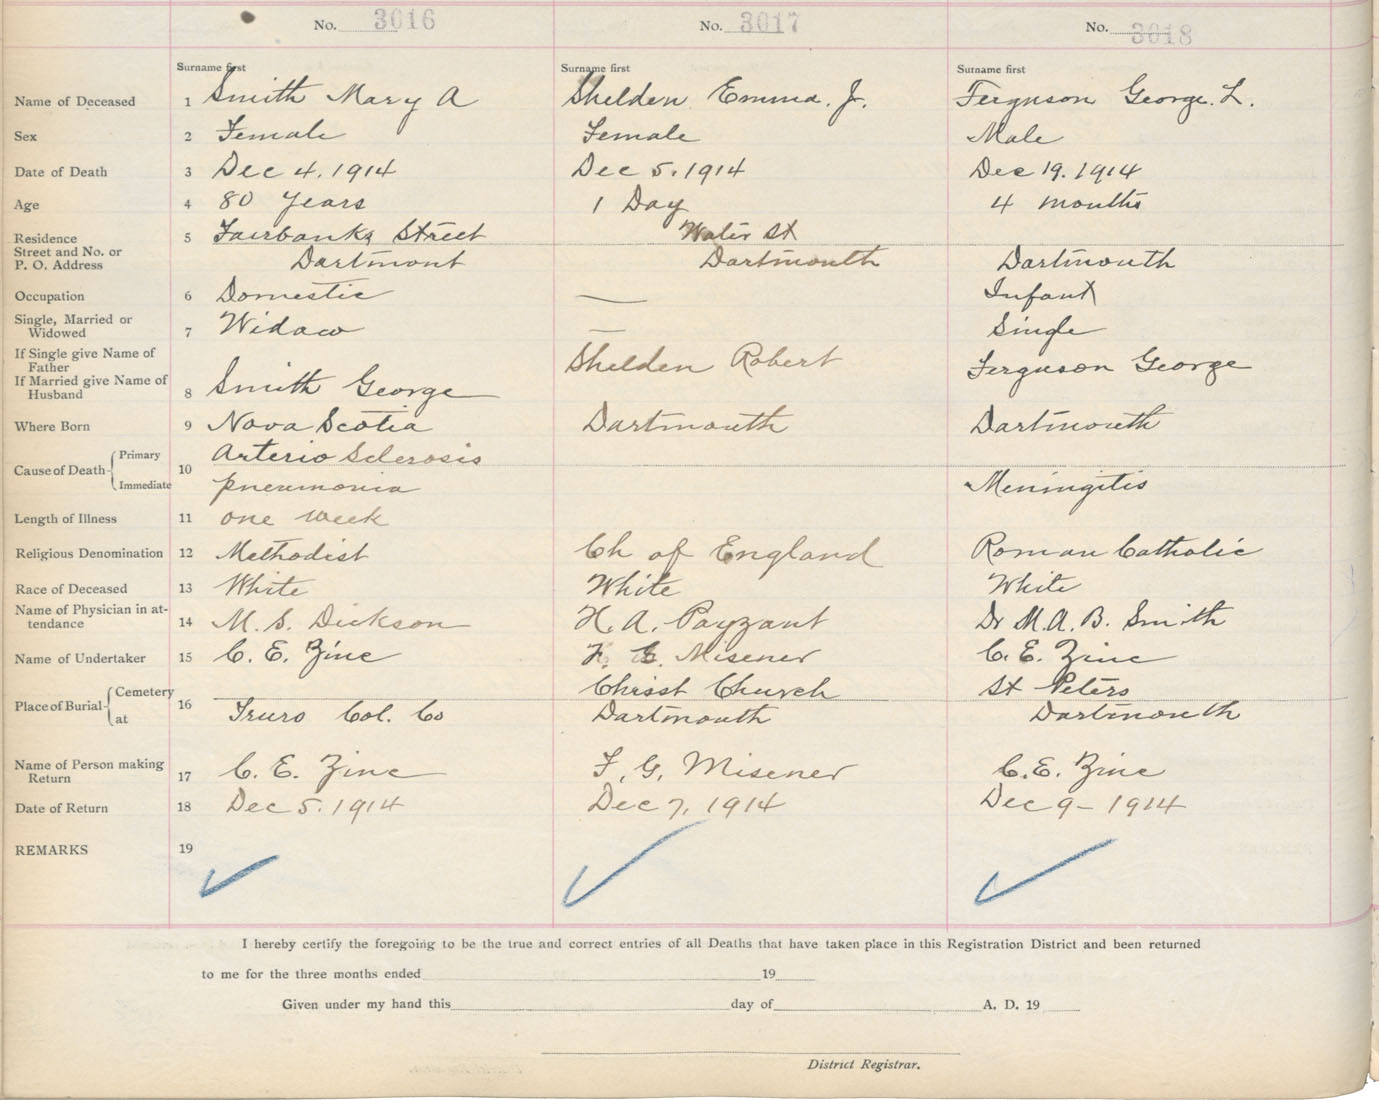 No. 3016 No. 3017 No. 3018
Surname first Surname first Surname first
Name of Deceased 1 Smith Mary A Shelden Emma. J. Ferguson George. L.
Sex 2 Female Female Male
Date of Death 3 Dec 4. 1914 Dec 5. 1914 Dec 19. 1914
Age 4 80 years 1 Day 4 months
Residence 5 Fairbanks Street Water St
Street and No. or
P. O. Address Dartmont Dartmouth Dartmouth
Occupation 6 Domestic — Infant
Single, Married or
Widowed 7 Widaw — Single
If Single give Name of
Father Shelden Robert Ferguson George
If Married give Name of
Husband 8 Smith George
Where Born 9 Nova Scotia Dartmouth Dartmouth
Primary Arterio Sclerosis
Cause of Death 10
Immediate pneumonia Meningitis
Length of Illness 11 one week
Religious Denomination 12 Methodist Ch of England Roman Catholic
Race of Deceased 13 White White White
Name of Physician in at-
tendance 14 M. S. Dickson H. A. Payzant Dr M. A. B. Smith
Name of Undertaker 15 C. E. Zinc F. G. Misener C. E. Zinc
Cemetery Christ Church St Peters
Place of Burial 16
at Truro Col. Co Dartmouth Dartmouth
Name of Person making
Return 17 C. E. Zinc F. G. Misener C. E. Zinc
Date of Return 18 Dec 5. 1914 Dec 7, 1914 Dec 9 - 1914
REMARKS 19
I hereby certify the foregoing to be the true and correct entries of all Deaths that have taken place in this Registration District and been returned
to me for the three months ended 19
Given under my hand this day of A. D. 19
District Registrar.